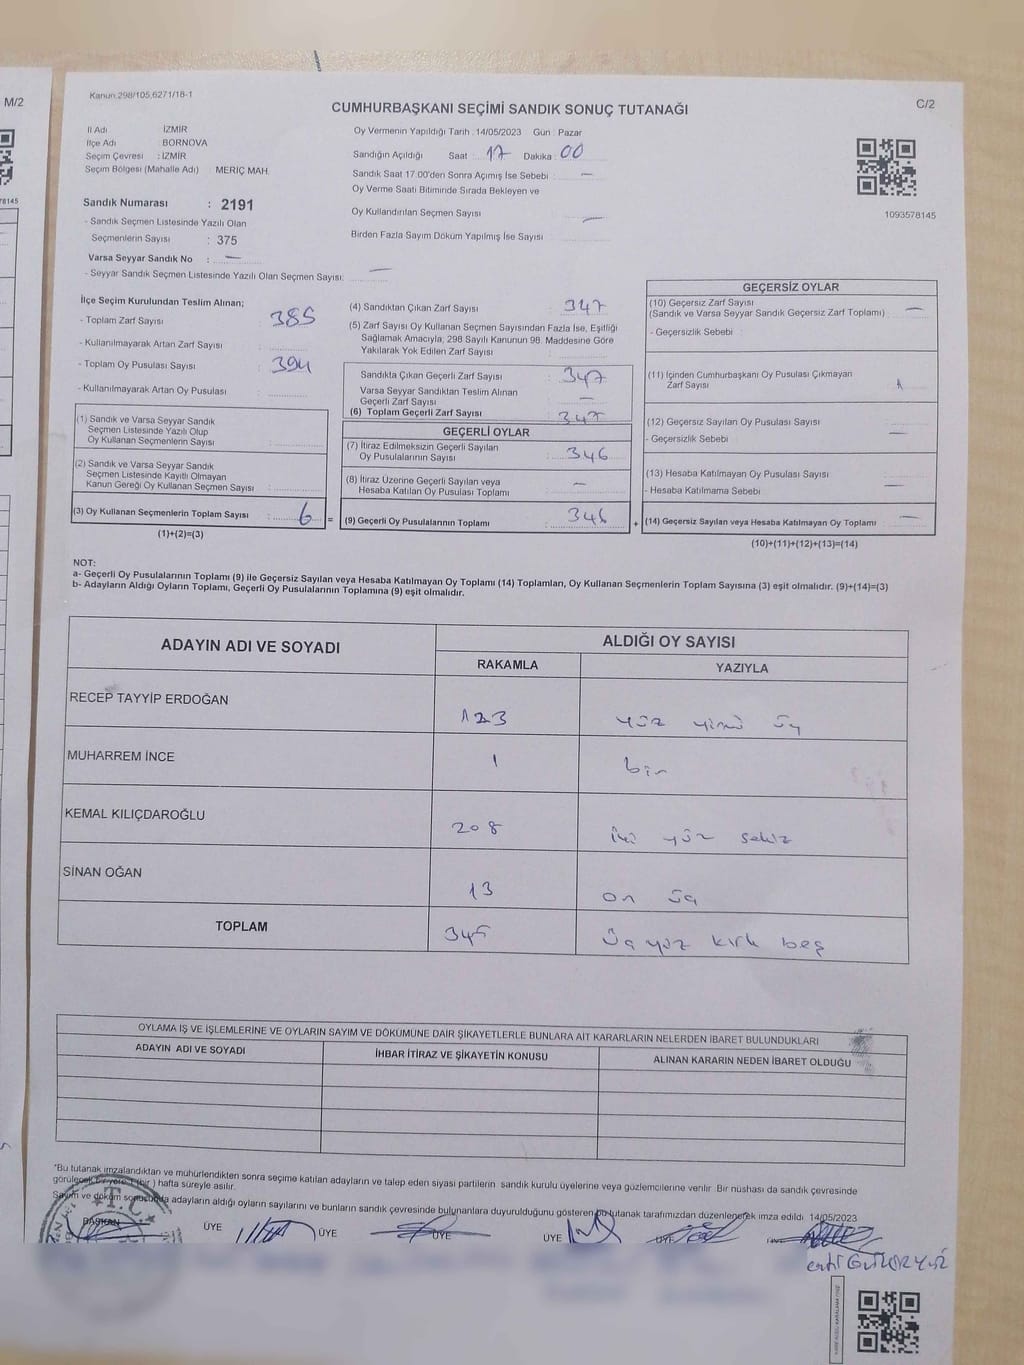 M/2
Kanun 298/105,6271/18-1
C/2
CUMHURBAŞKANI SEÇİMİ SANDIK SONUÇ TUTANAĞI
İl Adı İZMİR
İlçe Adı BORNOVA
Seçim Çevresi : İZMİR
Seçim Bölgesi (Mahalle Adı) MERİÇ MAH.
Oy Vermenin Yapıldığı Tarih : 14/05/2023 Gün : Pazar
Sandığın Açıldığı Saat : 17 Dakika : 00
Sandık Saat 17:00'den Sonra Açımış İse Sebebi : —
Oy Verme Saati Bitiminde Sırada Bekleyen ve
Oy Kullandırılan Seçmen Sayısı —
Birden Fazla Sayım Döküm Yapılmış İse Sayısı
1093578145
78145
Sandık Numarası : 2191
- Sandık Seçmen Listesinde Yazılı Olan
Seçmenlerin Sayısı : 375
Varsa Seyyar Sandık No : —
- Seyyar Sandık Seçmen Listesinde Yazılı Olan Seçmen Sayısı: —
İlçe Seçim Kurulundan Teslim Alınan;
- Toplam Zarf Sayısı : 385
- Kullanılmayarak Artan Zarf Sayısı :
- Toplam Oy Pusulası Sayısı : 394
- Kullanılmayarak Artan Oy Pusulası :
(1) Sandık ve Varsa Seyyar Sandık
Seçmen Listesinde Yazılı Olup
Oy Kullanan Seçmenlerin Sayısı :
(2) Sandık ve Varsa Seyyar Sandık
Seçmen Listesinde Kayıtlı Olmayan
Kanun Gereği Oy Kullanan Seçmen Sayısı :
(3) Oy Kullanan Seçmenlerin Toplam Sayısı : 6 =
(1)+(2)=(3)
(4) Sandıktan Çıkan Zarf Sayısı : 347
(5) Zarf Sayısı Oy Kullanan Seçmen Sayısından Fazla İse, Eşitliği
Sağlamak Amacıyla, 298 Sayılı Kanunun 98. Maddesine Göre
Yakılarak Yok Edilen Zarf Sayısı :
Sandıkta Çıkan Geçerli Zarf Sayısı : 347
Varsa Seyyar Sandıktan Teslim Alınan
Geçerli Zarf Sayısı : —
(6) Toplam Geçerli Zarf Sayısı : 347
GEÇERLİ OYLAR
(7) İtiraz Edilmeksizin Geçerli Sayılan
Oy Pusulalarının Sayısı : 346
(8) İtiraz Üzerine Geçerli Sayılan veya
Hesaba Katılan Oy Pusulası Toplamı : —
(9) Geçerli Oy Pusulalarının Toplamı : 346 +
GEÇERSİZ OYLAR
(10) Geçersiz Zarf Sayısı
(Sandık ve Varsa Seyyar Sandık Geçersiz Zarf Toplamı) : —
- Geçersizlik Sebebi :
(11) İçinden Cumhurbaşkanı Oy Pusulası Çıkmayan
Zarf Sayısı : 1
(12) Geçersiz Sayılan Oy Pusulası Sayısı :
- Geçersizlik Sebebi : —
(13) Hesaba Katılmayan Oy Pusulası Sayısı :
- Hesaba Katılmama Sebebi : —
(14) Geçersiz Sayılan veya Hesaba Katılmayan Oy Toplamı : —
(10)+(11)+(12)+(13)=(14)
NOT:
a- Geçerli Oy Pusulalarının Toplamı (9) ile Geçersiz Sayılan veya Hesaba Katılmayan Oy Toplamı (14) Toplamları, Oy Kullanan Seçmenlerin Toplam Sayısına (3) eşit olmalıdır. (9)+(14)=(3)
b- Adayların Aldığı Oyların Toplamı, Geçerli Oy Pusulalarının Toplamına (9) eşit olmalıdır.
ADAYIN ADI VE SOYADI
ALDIĞI OY SAYISI
RAKAMLA YAZIYLA
RECEP TAYYİP ERDOĞAN 123 yüz yirmi üç
MUHARREM İNCE 1 bir
KEMAL KILIÇDAROĞLU 208 iki yüz sekiz
SİNAN OĞAN 13 on üç
TOPLAM 345 üç yüz kırk beş
OYLAMA İŞ VE İŞLEMLERİNE VE OYLARIN SAYIM VE DÖKÜMÜNE DAİR ŞİKAYETLERLE BUNLARA AİT KARARLARIN NELERDEN İBARET BULUNDUKLARI
ADAYIN ADI VE SOYADI İHBAR İTİRAZ VE ŞİKAYETİN KONUSU ALINAN KARARIN NEDEN İBARET OLDUĞU
*Bu tutanak imzalandıktan ve mühürlendikten sonra seçime katılan adayların ve talep eden siyasi partilerin sandık kurulu üyelerine veya gözlemcilerine verilir. Bir nüshası da sandık çevresinde
görülecek bir yere 1 (bir) hafta süreyle asılır.
Sayım ve döküm sonucunda adayların aldığı oyların sayılarını ve bunların sandık çevresinde bulunanlara duyurulduğunu gösteren bu tutanak tarafımızdan düzenlenerek imza edildi. 14/05/2023
T.C.
BAŞKAN ÜYE ÜYE ÜYE ÜYE ÜYE